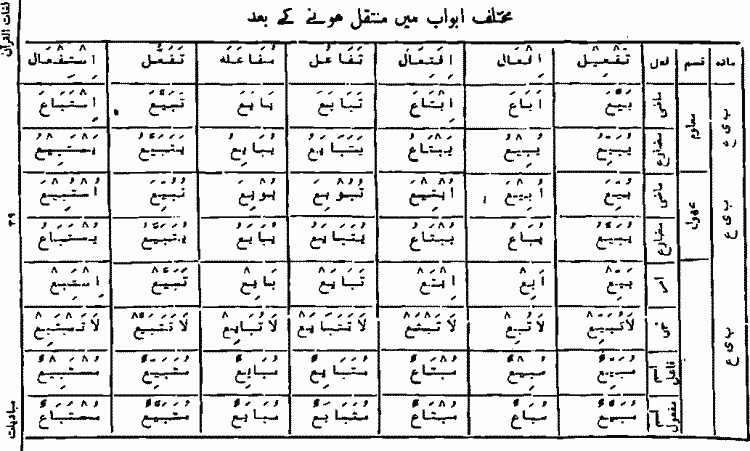 لغات القرآن
مختلف ابواب میں منتقل ہونے کے بعد
مادہ قسم فعل تَفْعِیْل اِفْعَال اِفْتِعَال تَفَاعُل مُفَاعَلَہ تَفَعُّل اِسْتِفْعَال
ب ی ع معلوم ماضی بَیَّعَ اَبَاعَ اِبْتَاعَ تَبَایَعَ بَایَعَ تَبَیَّعَ اِسْتَبَاعَ
مضارع یُبَیِّعُ یُبِیْعُ یَبْتَاعُ یَتَبَایَعُ یُبَایِعُ یَتَبَیَّعُ یَسْتَبِیْعُ
ب ی ع مجہول ماضی بُیِّعَ اُبِیْعَ اُبْتِیْعَ تُبُوْیِعَ بُوْیِعَ تُبُیِّعَ اُسْتُبِیْعَ
مضارع یُبَیَّعُ یُبَاعُ یُبْتَاعُ یُتَبَایَعُ یُبَایَعُ یُتَبَیَّعُ یُسْتَبَاعُ
ب ی ع امر بَیِّعْ اَبِعْ اِبْتَعْ تَبَایَعْ بَایِعْ تَبَیَّعْ اِسْتَبِعْ
نہی لَاتُبَیِّعْ لَاتُبِعْ لَاتَبْتَعْ لَاتَتَبَایَعْ لَاتُبَایِعْ لَاتَتَبَیَّعْ لَاتَسْتَبِعْ
اسم فاعل مُبَیِّعٌ مُبِیْعٌ مُبْتَاعٌ مُتَبَایِعٌ مُبَایِعٌ مُتَبَیِّعٌ مُسْتَبِیْعٌ
اسم مفعول مُبَیَّعٌ مُبَاعٌ مُبْتَاعٌ مُتَبَایَعٌ مُبَایَعٌ مُتَبَیَّعٌ مُسْتَبَاعٌ
۳۹
مبادیات